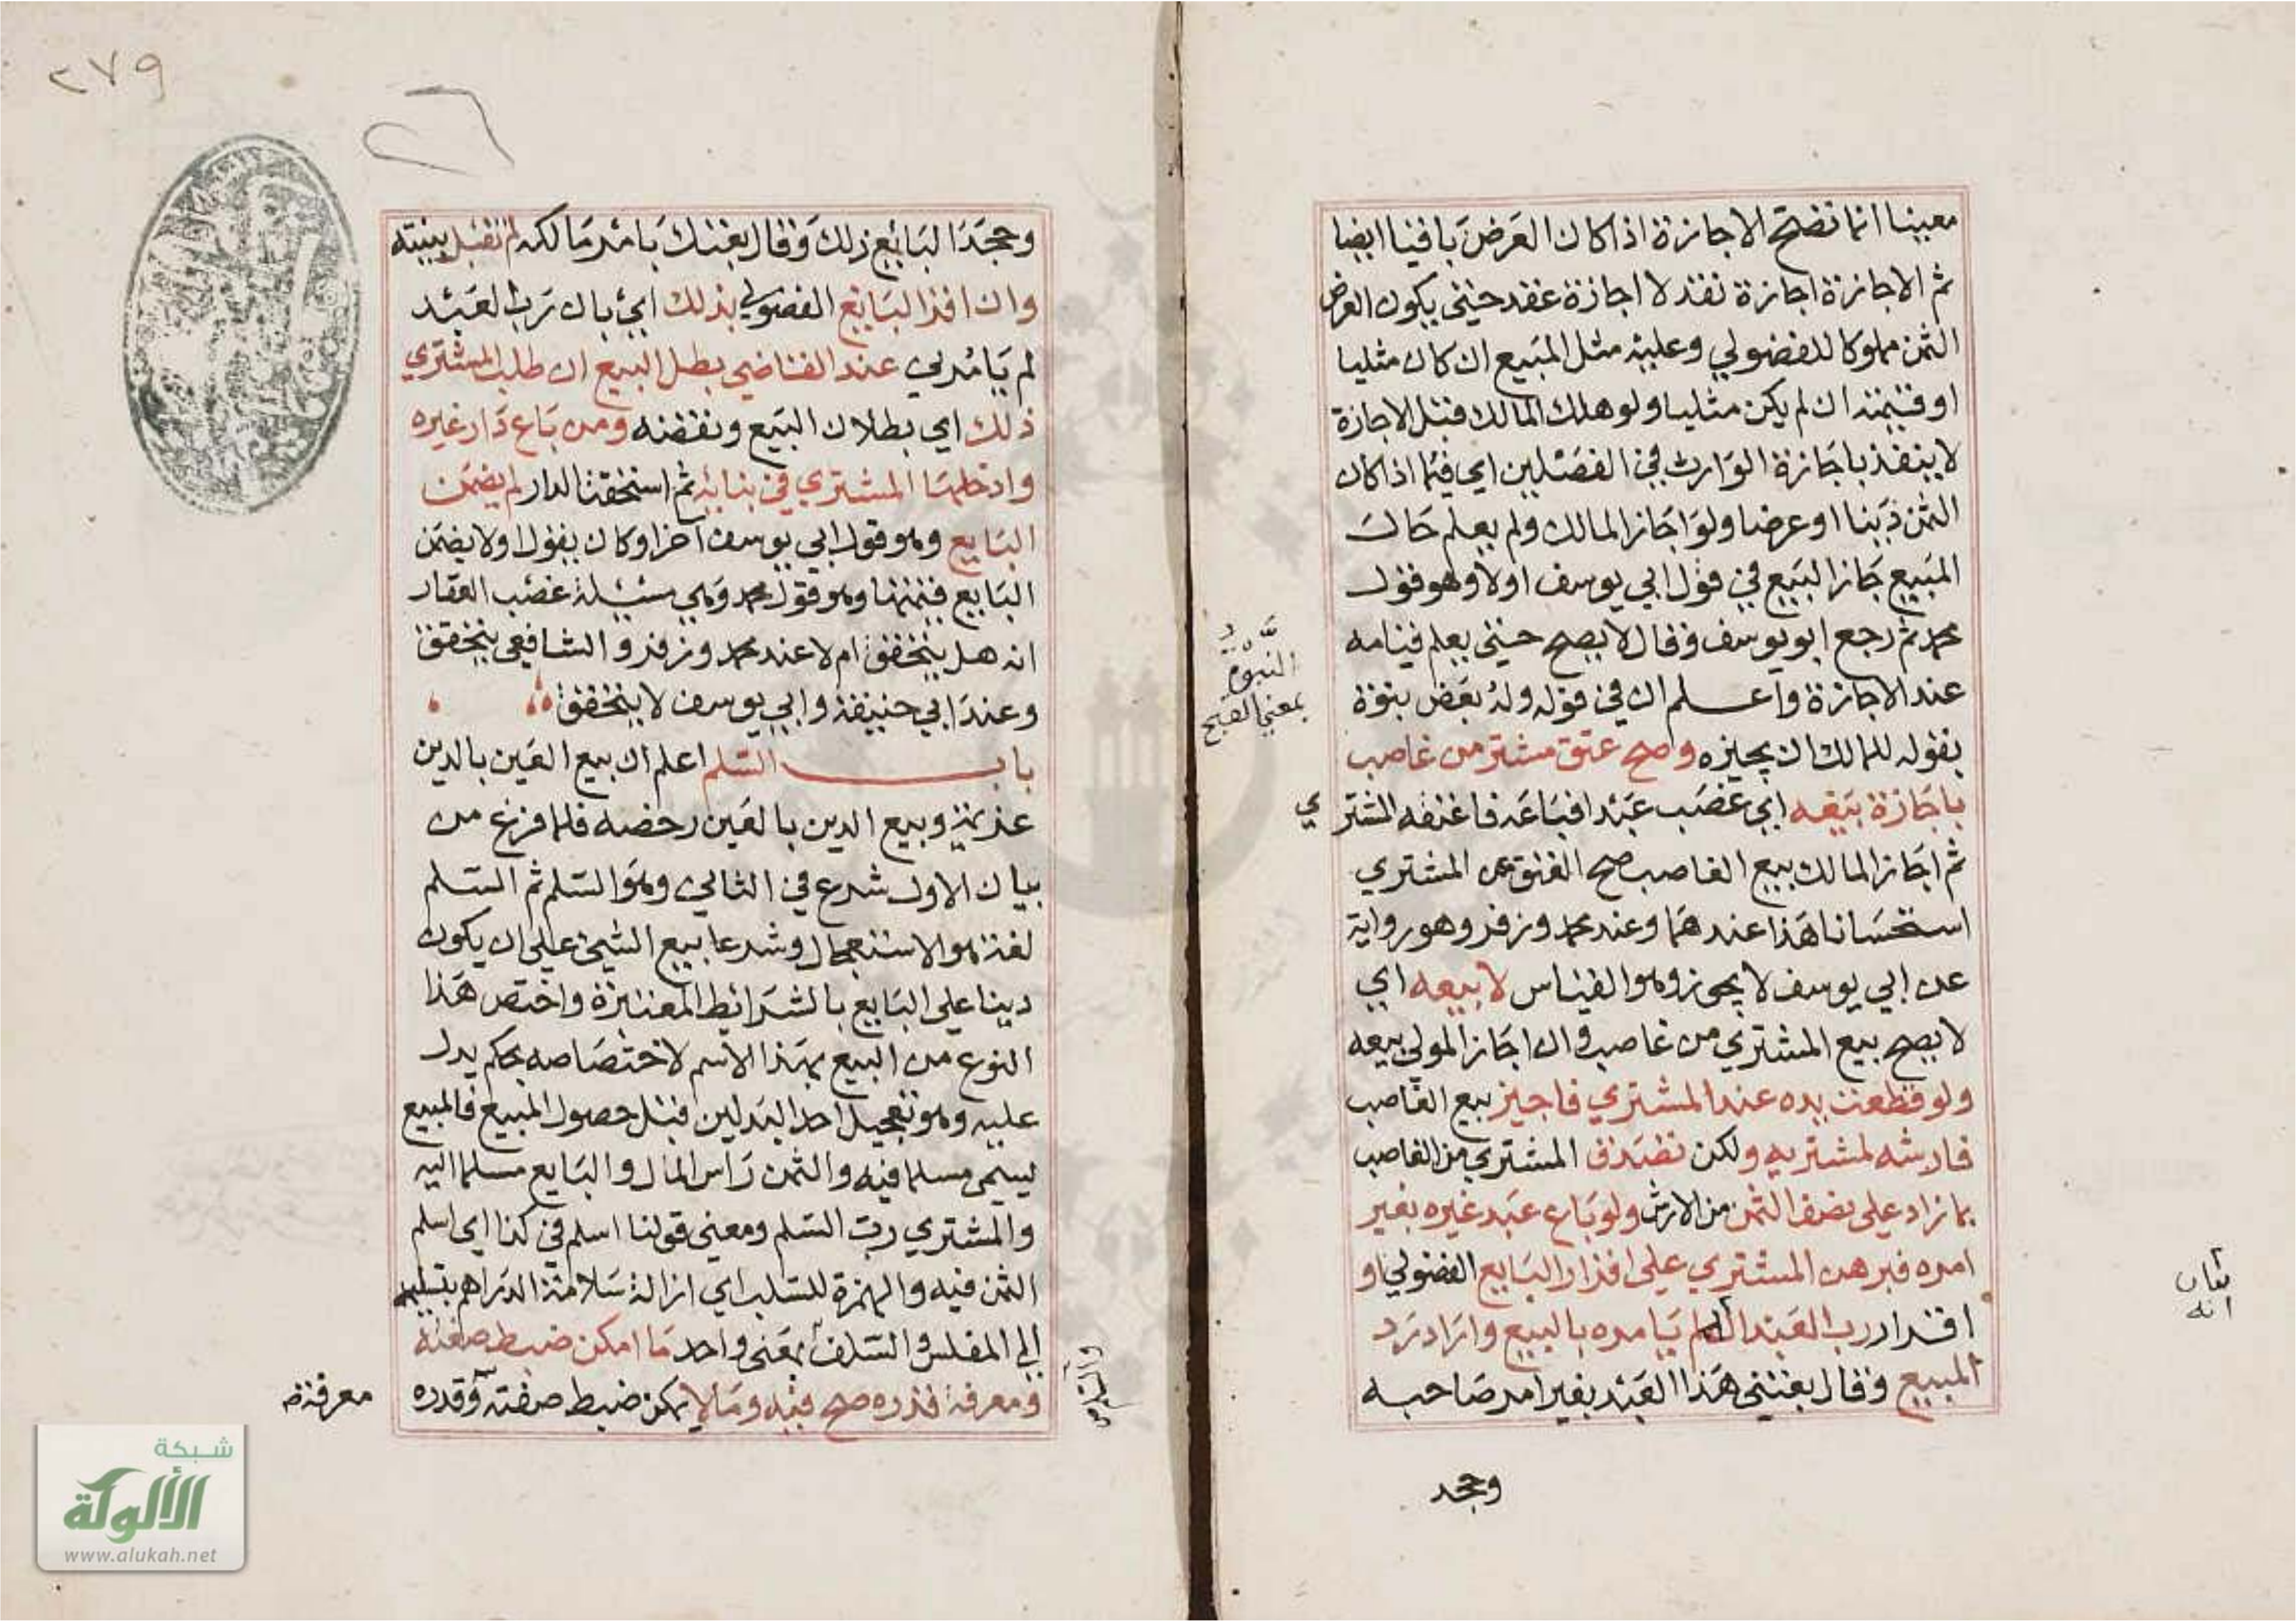 معينا انما تصح الاجازة اذا كان العرض باقيا ايضا
ثم الاجازة اجازة نقد لا اجازة عقد حتى يكون العرض
الثمن مملوكا للفضولي وعليه مثل المبيع ان كان مثليا
او قيمته ان لم يكن مثليا ولو هلك المالك قبل الاجازة
لا ينفذ باجازة الوارث في الفصلين اي فيما اذا كان
الثمن دينا او عرضا ولو اجاز المالك ولم يعلم حال
المبيع جاز البيع في قول ابي يوسف اولا وهو قول
محمد ثم رجع ابو يوسف وقال لا يصح حتى يعلم قيامه
عند الاجازة واعلم ان في قوله وله بعض بنوة
بقوله للمالك ان يجيزه وصح عتق مشتر من غاصب
باجازة بيعه اي غصب عبدا فباعه فاعتقه المشتري
ثم اجاز المالك بيع الغاصب صح العتق عن المشتري
استحسانا هذا عندهما وعند محمد وزفر وهو رواية
عن ابي يوسف لا يجوز وهو القياس لا بيعه اي
لا يصح بيع المشتري من غاصب وان اجاز المولى بيعه
ولو قطعت يده عند المشتري فاجيز بيع الغاصب
فارشه لمشتريه ولكن تصدق المشتري من الغاصب
بما زاد على نصف الثمن من الارش ولو باع عبد غيره بغير
امره فبرهن المشتري على اقرار البايع الفضولي او
اقرار رب العبد انه لم يامره بالبيع واراد رد
المبيع وقال بعتني هذا العبد بغير امر صاحبه
وجحد
النبوة
بمعنى القبح
بيان
انه
٢٧٩
وجحد البايع ذلك وقال بعتك بامر مالكه لم تقبل بينته
وان اقر البايع الفضولي بذلك اي بان رب العبد
لم يامرني عند القاضي بطل البيع ان طلب المشتري
ذلك اي بطلان البيع ونقضه ومن باع دار غيره
وادخلها المشتري في بنائه ثم استحقت الدار لم يضمن
البايع وهو قول ابي يوسف آخرا وكان يقول اولا يضمن
البايع قيمتها وهو قول محمد وهي مسئلة غصب العقار
انه هل يتحقق ام لا عند محمد وزفر والشافعي يتحقق
وعند ابي حنيفة وابي يوسف لا يتحقق
باب السلم اعلم ان بيع العين بالدين
عزيمة وبيع الدين بالعين رخصه فلما فرغ من
بيان الاول شرع في الثاني وهو السلم ثم السلم
لغة هو الاستعجال وشرعا بيع الشيء على ان يكون
دينا على البايع بالشرائط المعتبرة واختص هذا
النوع من البيع بهذا الاسم لاختصاصه بحكم يدل
عليه وهو تعجيل احد البدلين قبل حصول المبيع فالمبيع
يسمى مسلما فيه والثمن راس المال والبايع مسلما اليه
والمشتري رب السلم ومعنى قولنا اسلم في كذا اي اسلم
الثمن فيه والهمزة للسلب اي ازالة سلامة الدراهم بتسليمها
الى المفلس والسلف بمعنى واحد ما امكن ضبط صفته
ومعرفة قدره صح فيه وما لا يمكن ضبط صفته وقدره
معرفة
شبكة
الألوكة
www.alukah.net